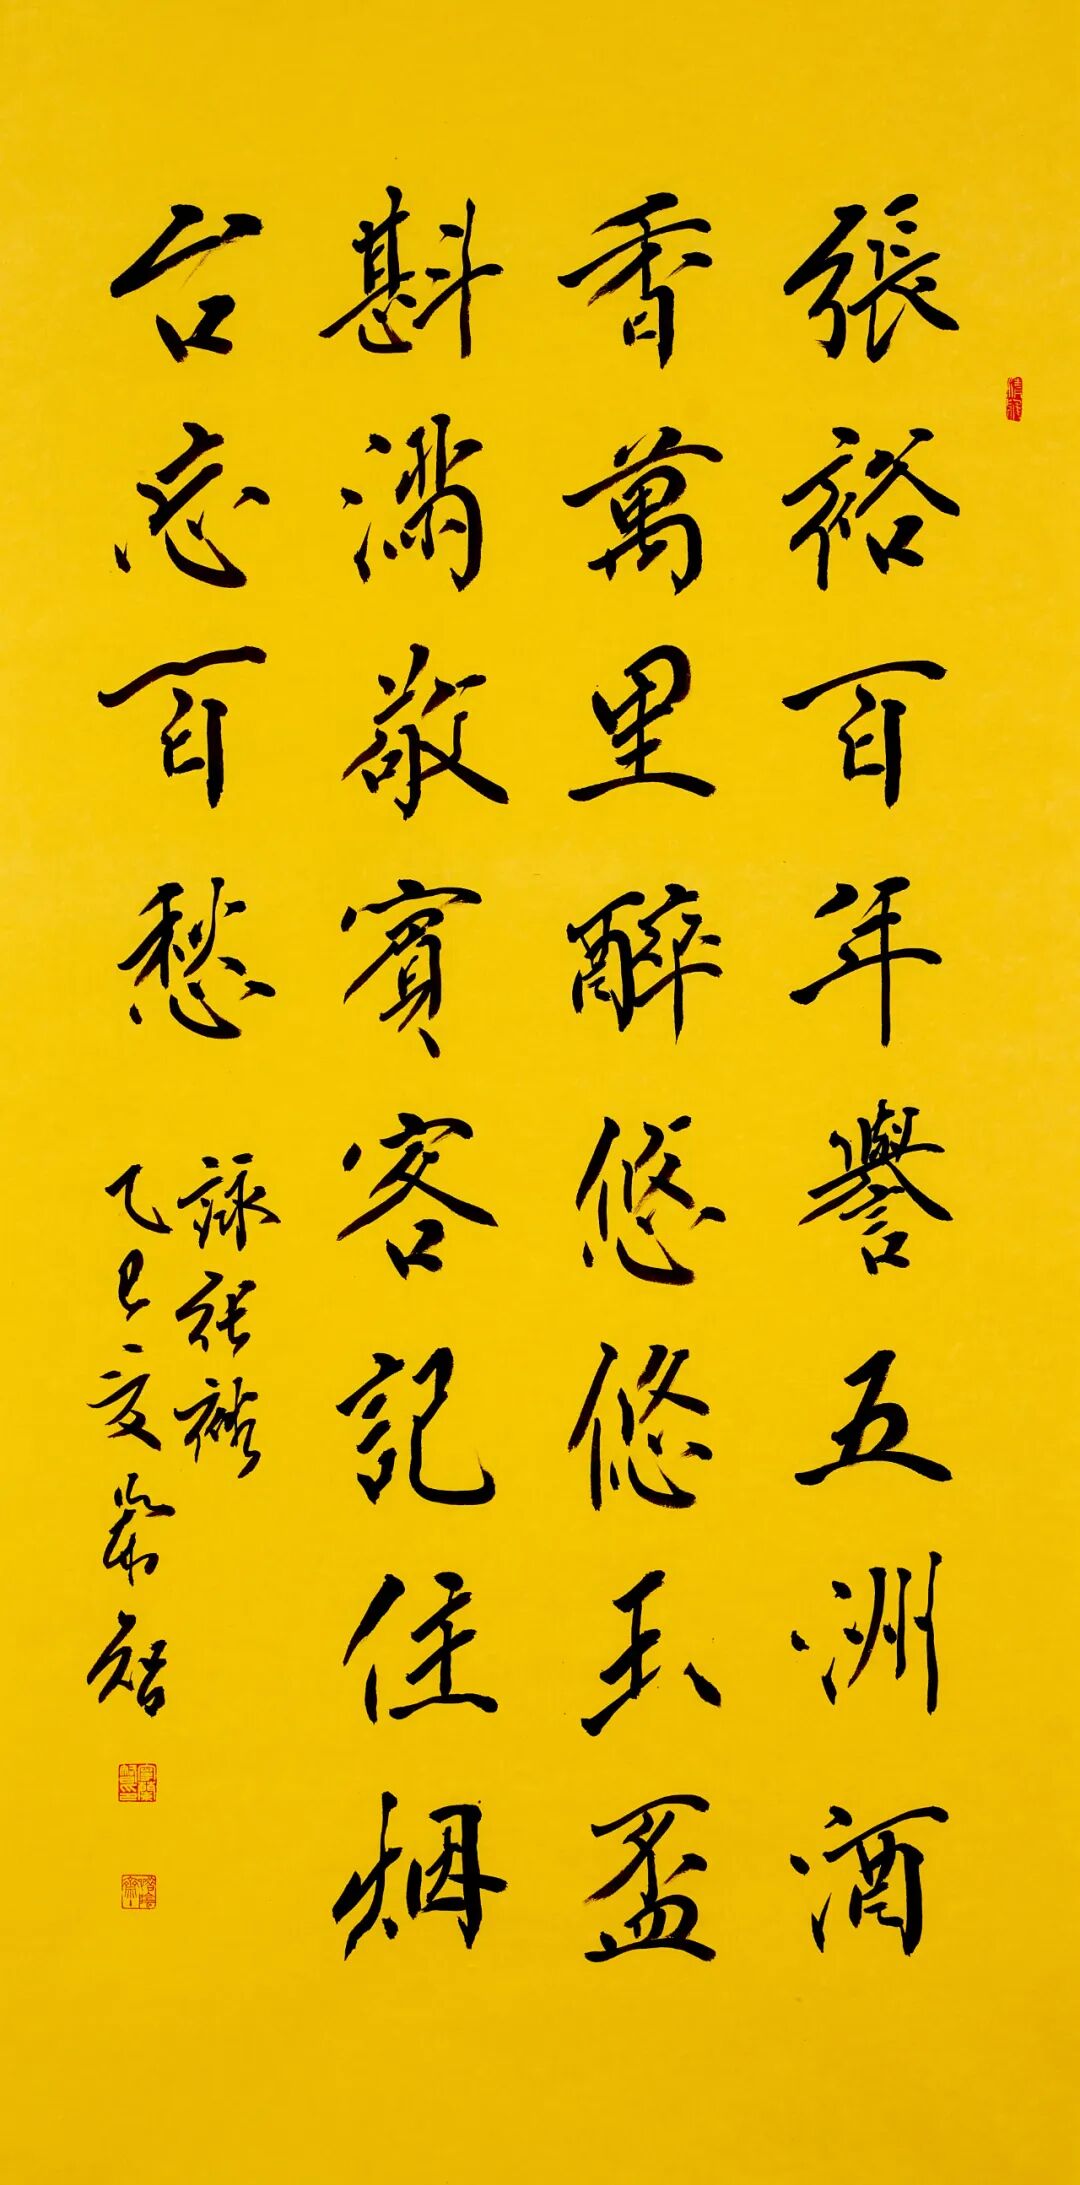 張裕百年譽五洲酒
香萬里醉悠悠玉盃
斟滿敬賓客記住烟
台忘百愁
詠張裕
乙巳夏